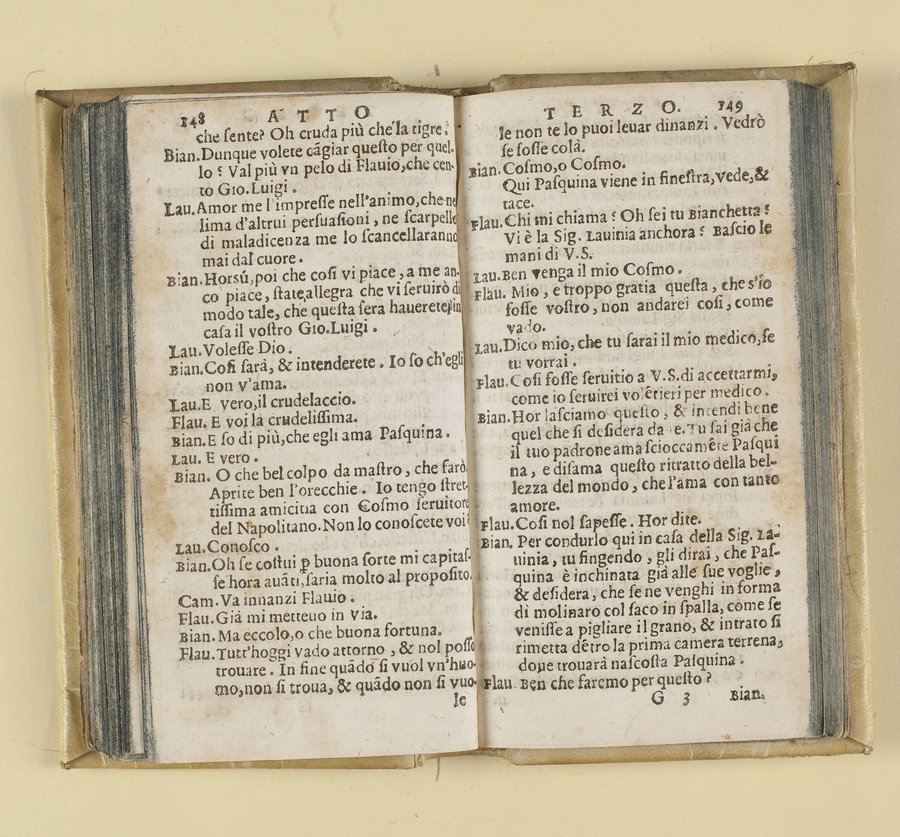 148 ATTO
che sente? Oh cruda più che'la tigre.
Bian. Dunque volete cãgiar questo per quel-
lo? Val più vn pelo di Flauio, che cen-
to Gio. Luigi.
Lau. Amor me l'impresse nell'animo, che ne
lima d'altrui persuasioni, ne scarpello
di maladicenza me lo scancellaranno
mai dal cuore.
Bian. Horsù, poi che cosi vi piace, a me an-
co piace, state, allegra che vi seruirò di
modo tale, che questa sera hauerete in
casa il vostro Gio. Luigi.
Lau. Volesse Dio.
Bian. Cosi sarà, & intenderete. Io so ch'egli
non v'ama.
Lau. E vero, il crudelaccio.
Flau. E voi la crudelissima.
Bian. E so di più, che egli ama Pasquina.
Lau. E vero.
Bian. O che bel colpo da mastro, che farò
Aprite ben l'orecchie. Io tengo stret-
tissima amicitia con Cosmo seruitore
del Napolitano. Non lo conoscete voi?
Lau. Conosco.
Bian. Oh se costui ꝑ buona sorte mi capitas-
se hora auãti, saria molto al proposito.
Cam. Va innanzi Flauio.
Flau. Già mi metteuo in via.
Bian. Ma eccolo, o che buona fortuna.
Flau. Tutt'hoggi vado attorno, & nol posso
trouare. In fine quãdo si vuol vn'huo-
mo, non si troua, & quãdo non si vuo-
le
TERZO. 149
le non te lo puoi leuar dinanzi. Vedrò
se fosse colà.
Bian. Cosmo, o Cosmo.
Qui Pasquina viene in finestra, vede, &
tace.
Flau. Chi mi chiama? Oh sei tu Bianchetta?
Vi è la Sig. Lauinia anchora? Bascio le
mani di V.S.
Lau. Ben venga il mio Cosmo.
Flau. Mio, e troppo gratia questa, che s'io
fosse vostro, non andarei cosi, come
vado.
Lau. Dico mio, che tu sarai il mio medico, se
tu vorrai.
Flau. Cosi fosse seruitio a V.S. di accettarmi,
come io seruirei volẽtieri per medico.
Bian. Hor lasciamo questo, & intendi bene
quel che si desidera da te. Tu sai già che
il tuo padrone ama scioccamẽte Pasqui
na, e disama questo ritratto della bel-
lezza del mondo, che l'ama con tanto
amore.
Flau. Cosi nol sapesse. Hor dite.
Bian. Per condurlo qui in casa della Sig. La-
uinia, tu fingendo, gli dirai, che Pas-
quina è inchinata già alle sue voglie,
& desidera, che se ne venghi in forma
di molinaro col saco in spalla, come se
venisse a pigliare il grano, & intrato si
rimetta dẽtro la prima camera terrena,
doue trouarà nascosta Pasquina.
Flau. Ben che faremo per questo?
G 3 Bian.